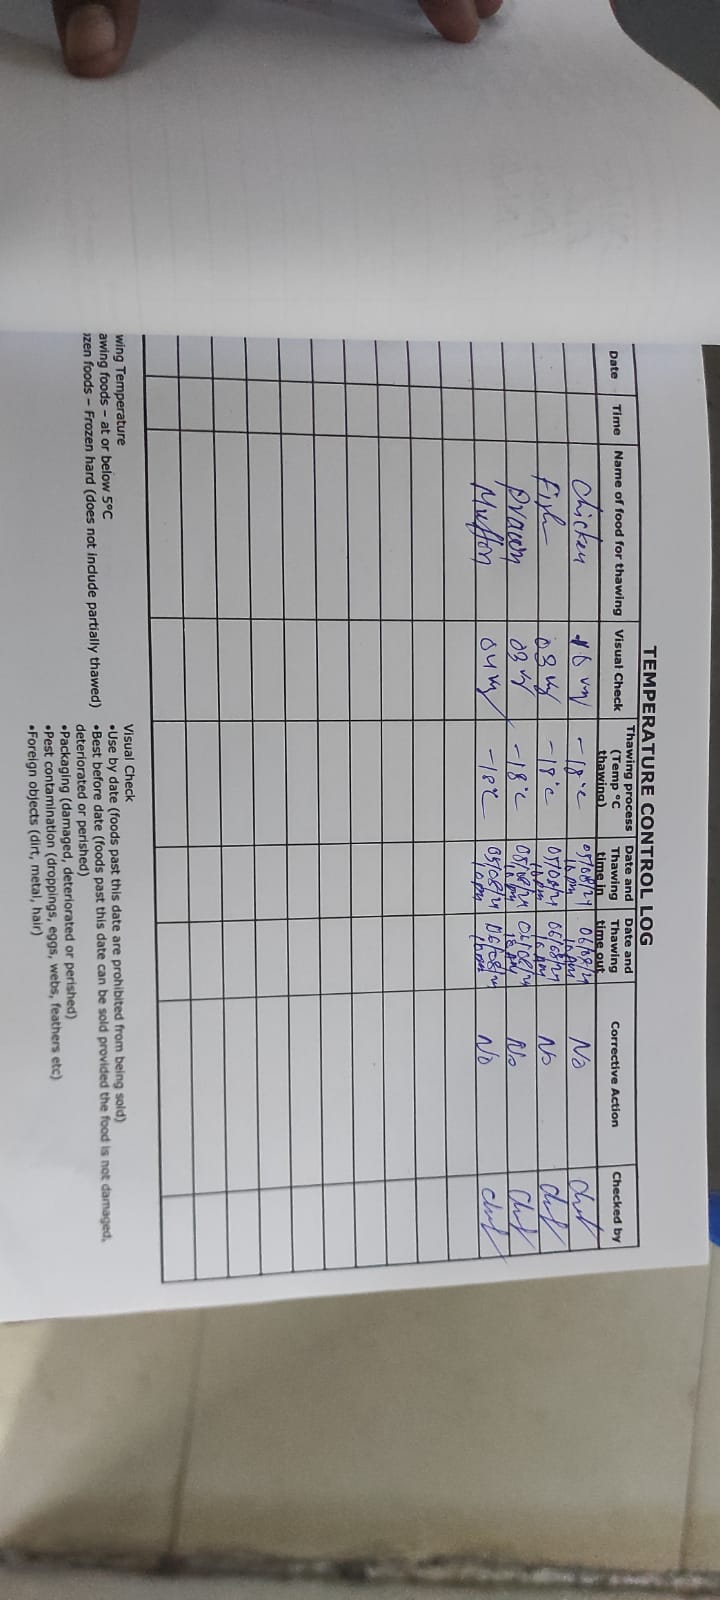 TEMPERATURE CONTROL LOG
Date Time Name of food for thawing Visual Check Thawing process (Temp °C thawing) Date and Thawing time in Date and Thawing time out Corrective Action Checked by
Chicken kg -18°c 05/08/24 10 pm 06/08/24 10 pm No Chef
Fish 03 kg -18°c 05/08/24 10 pm 06/08/24 10 pm No Chef
Prawn 03 kg -18°c 05/08/24 10 pm 06/08/24 10 pm No Chef
Mutton 04 kg -18°c 05/08/24 10 pm 06/08/24 10 pm No Chef
wing Temperature
awing foods – at or below 5°C
zen foods – Frozen hard (does not include partially thawed)
Visual Check
•Use by date (foods past this date are prohibited from being sold)
•Best before date (foods past this date can be sold provided the food is not damaged,
deteriorated or perished)
•Packaging (damaged, deteriorated or perished)
•Pest contamination (droppings, eggs, webs, feathers etc)
•Foreign objects (dirt, metal, hair)